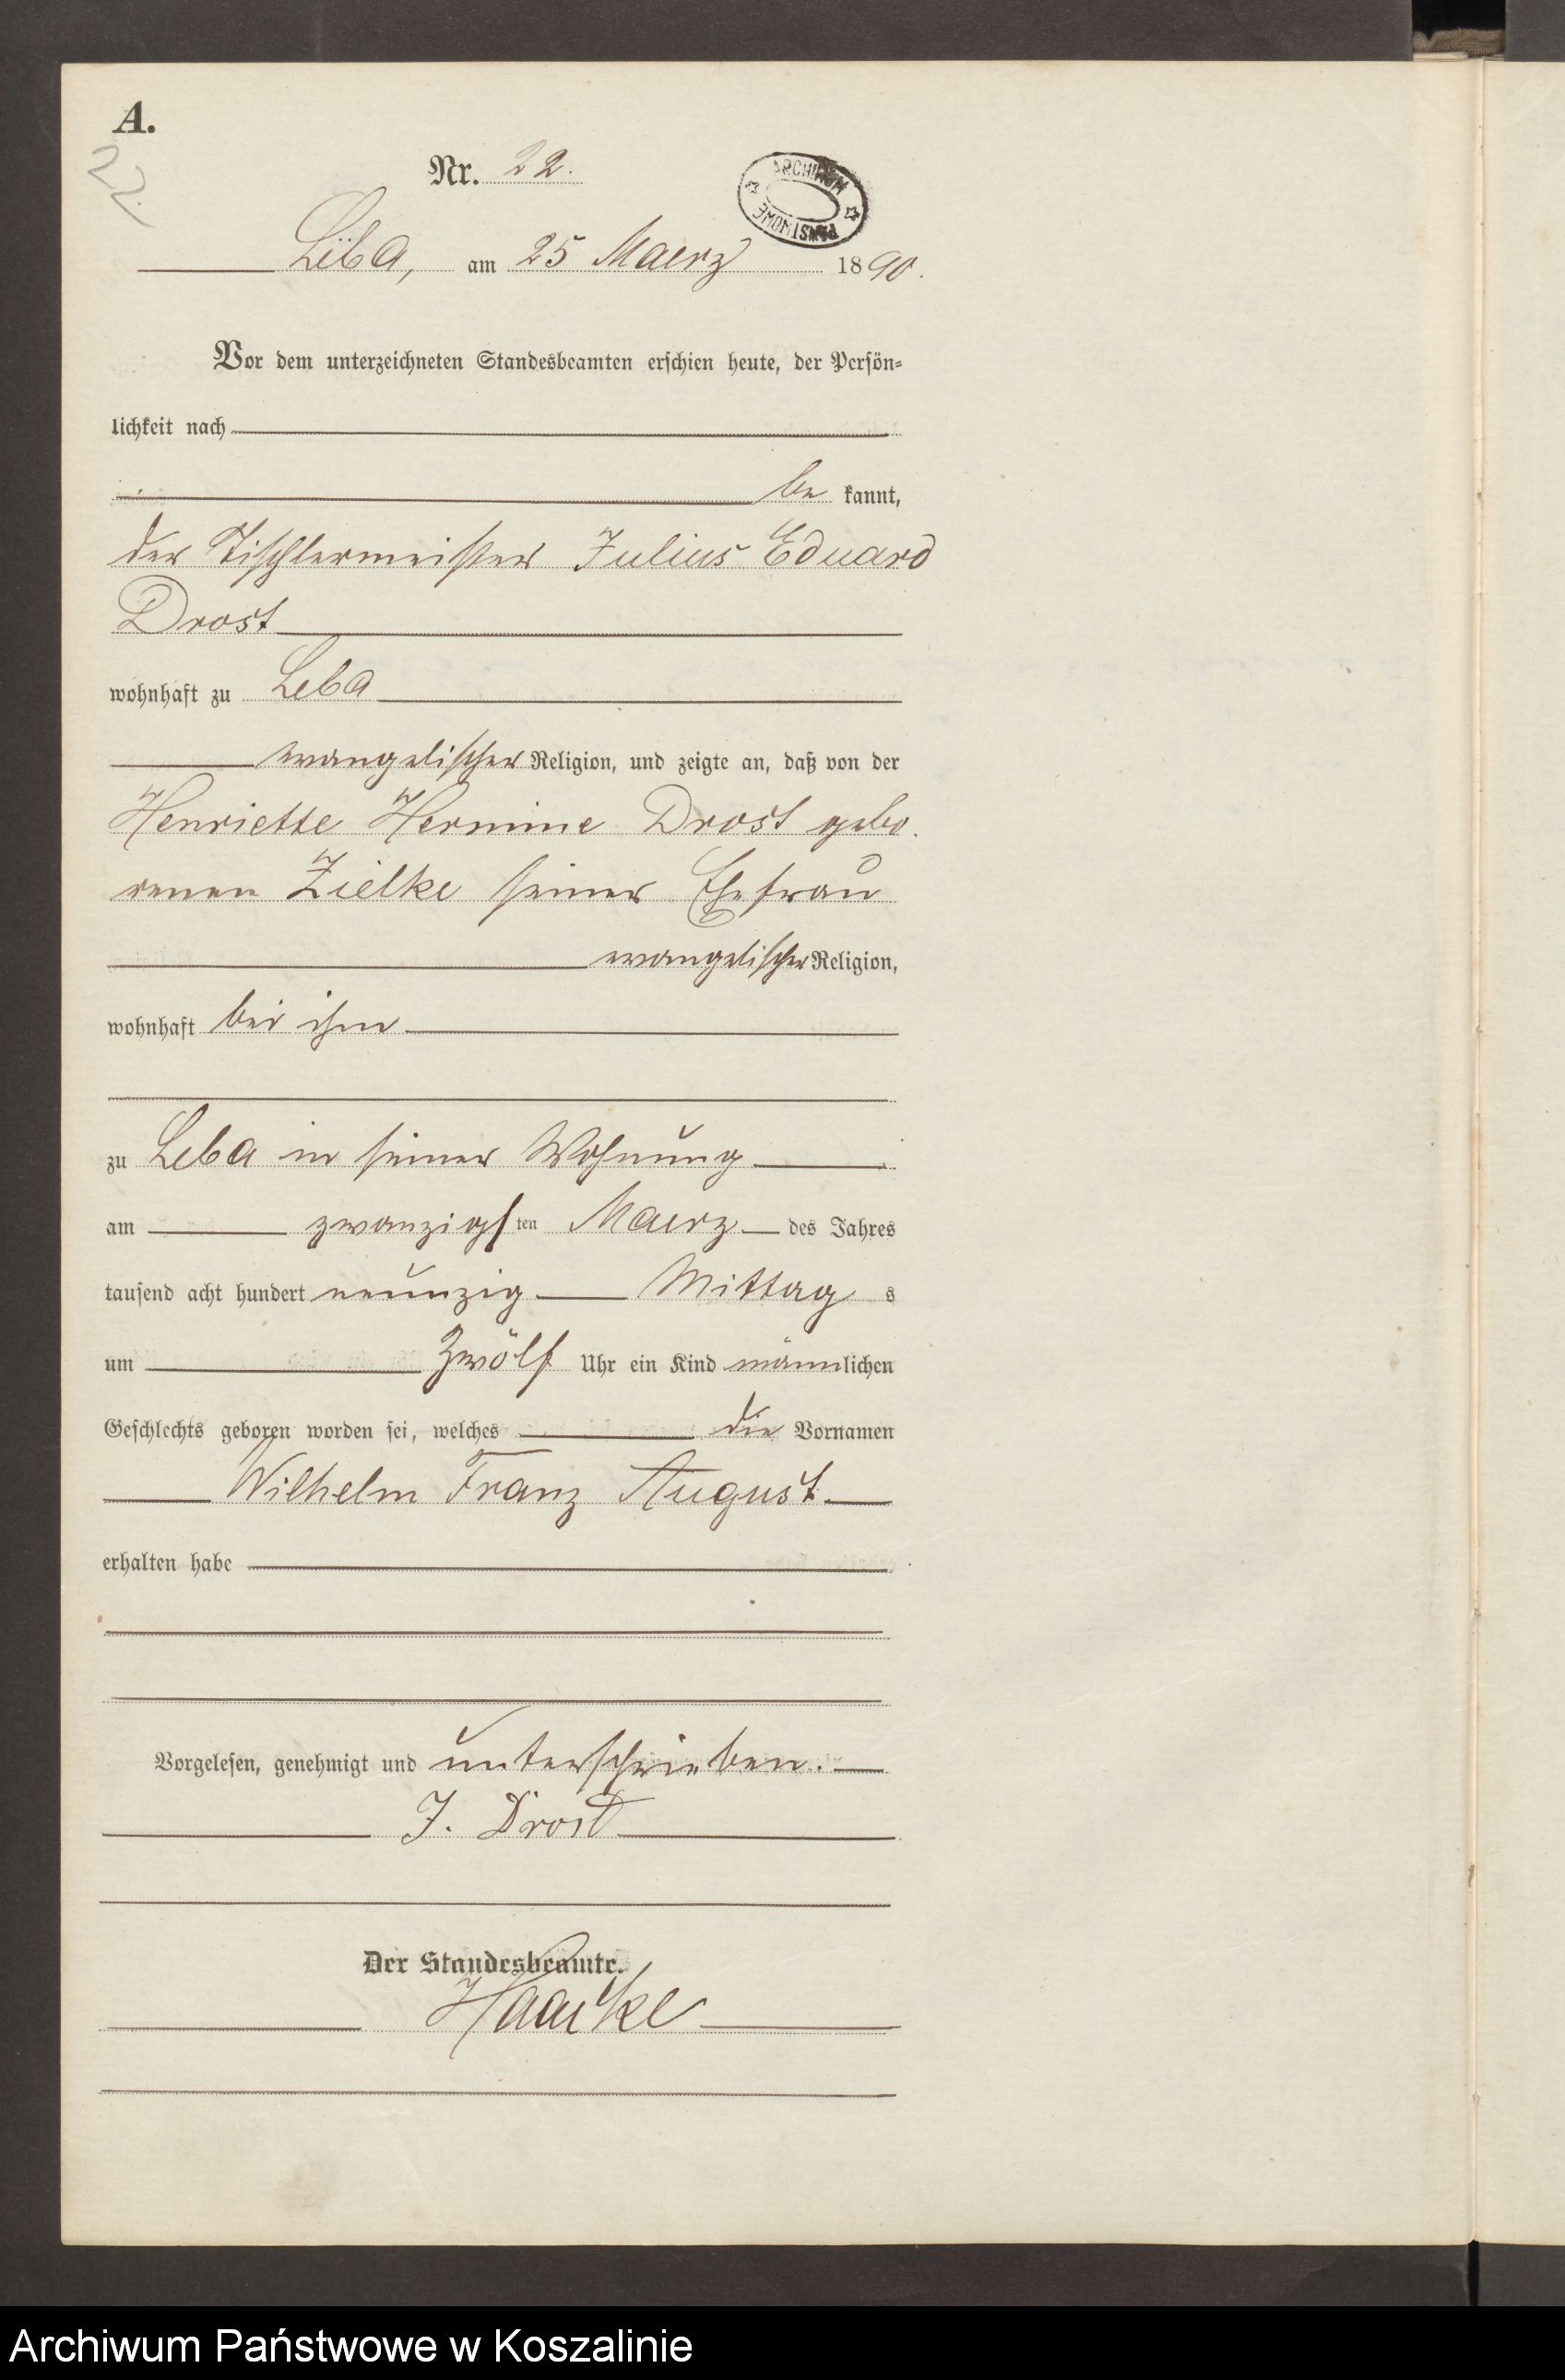 A.
22.
Nr. 22.
ARCHIWUM PAŃSTWOWE
Leba, am 25 Maerz 1890.
Vor dem unterzeichneten Standesbeamten erschien heute, der Persön=
lichkeit nach
be kannt,
der Tischlermeister Julius Eduard
Drost
wohnhaft zu Leba
evangelischer Religion, und zeigte an, daß von der
Henriette Hermine Drost gebo.
renen Zielke seiner Ehefrau
evangelischer Religion,
wohnhaft bei ihm
zu Leba in seiner Wohnung
am zwanzigsten Maerz des Jahres
tausend acht hundert neunzig Mittag s
um Zwölf Uhr ein Kind männlichen
Geschlechts geboren worden sei, welches die Vornamen
Wilhelm Franz August
erhalten habe
Vorgelesen, genehmigt und unterschrieben.
J. Drost
Der Standesbeamte.
Haacke
Archiwum Państwowe w Koszalinie